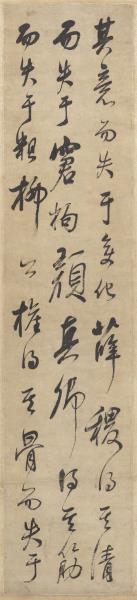 其意而失于變化薛稷得其清
而失于窘拘顏真卿得其筋
而失于粗柳公權得其骨而失于